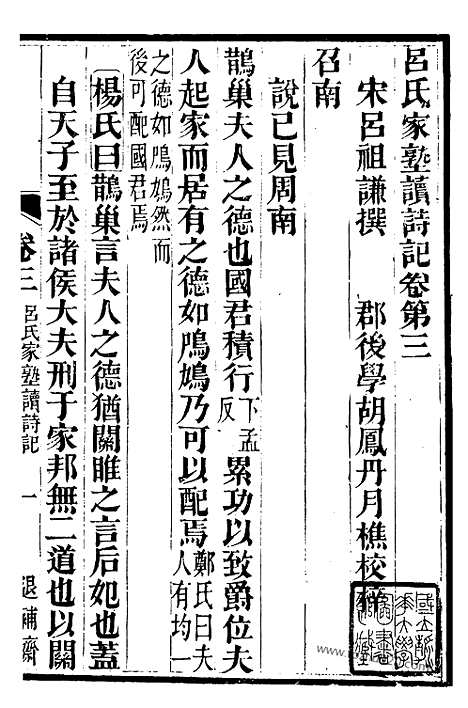 呂氏家塾讀詩記卷第三
宋呂祖謙撰　郡後學胡鳳丹月樵校梓
召南
說已見周南
鵲巢夫人之德也國君積行下孟反累功以致爵位夫
人起家而居有之德如鳲鳩乃可以配焉鄭氏曰夫人有均一
之德如鳲鳩然而後可配國君焉
楊氏曰鵲巢言夫人之德猶關雎之言后妃也蓋
自天子至於諸侯大夫刑于家邦無二道也以關
卷三　呂氏家塾讀詩記　一　退補齋